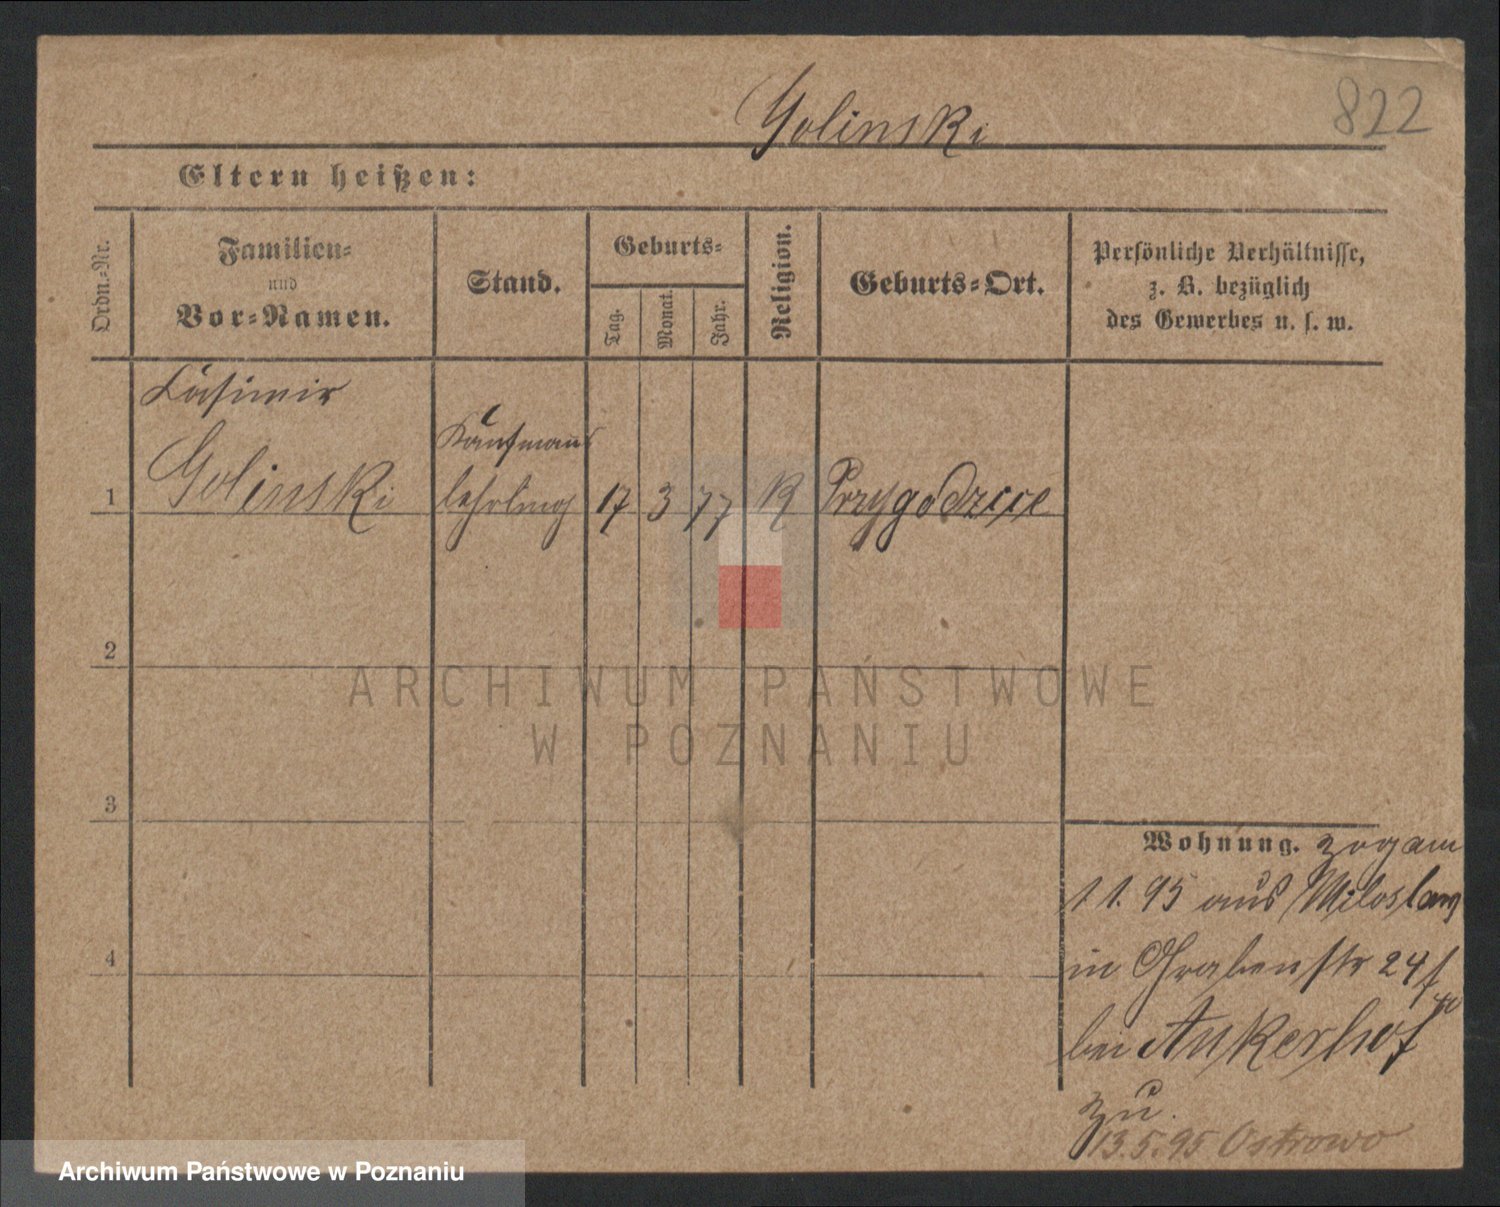 Golinski
822
Eltern heißen:
Ordn.-Nr.
Familien-
und
Vor-Namen.
Stand.
Geburts-
Tag.
Monat.
Jahr.
Religion.
Geburts-Ort.
Persönliche Verhältnisse,
z. B. bezüglich
des Gewerbes u. s. w.
Casimir
Kaufmanns
1 Golinski lehrling 17 3 77 K Przygodzice
2
ARCHIWUM PAŃSTWOWE
W POZNANIU
3
Wohnung. zog am
1 1. 95 aus Miloslaw
in Grabenstr 24
bei Ankerhof
zu.
13.5.95 Ostrowo
4
Archiwum Państwowe w Poznaniu